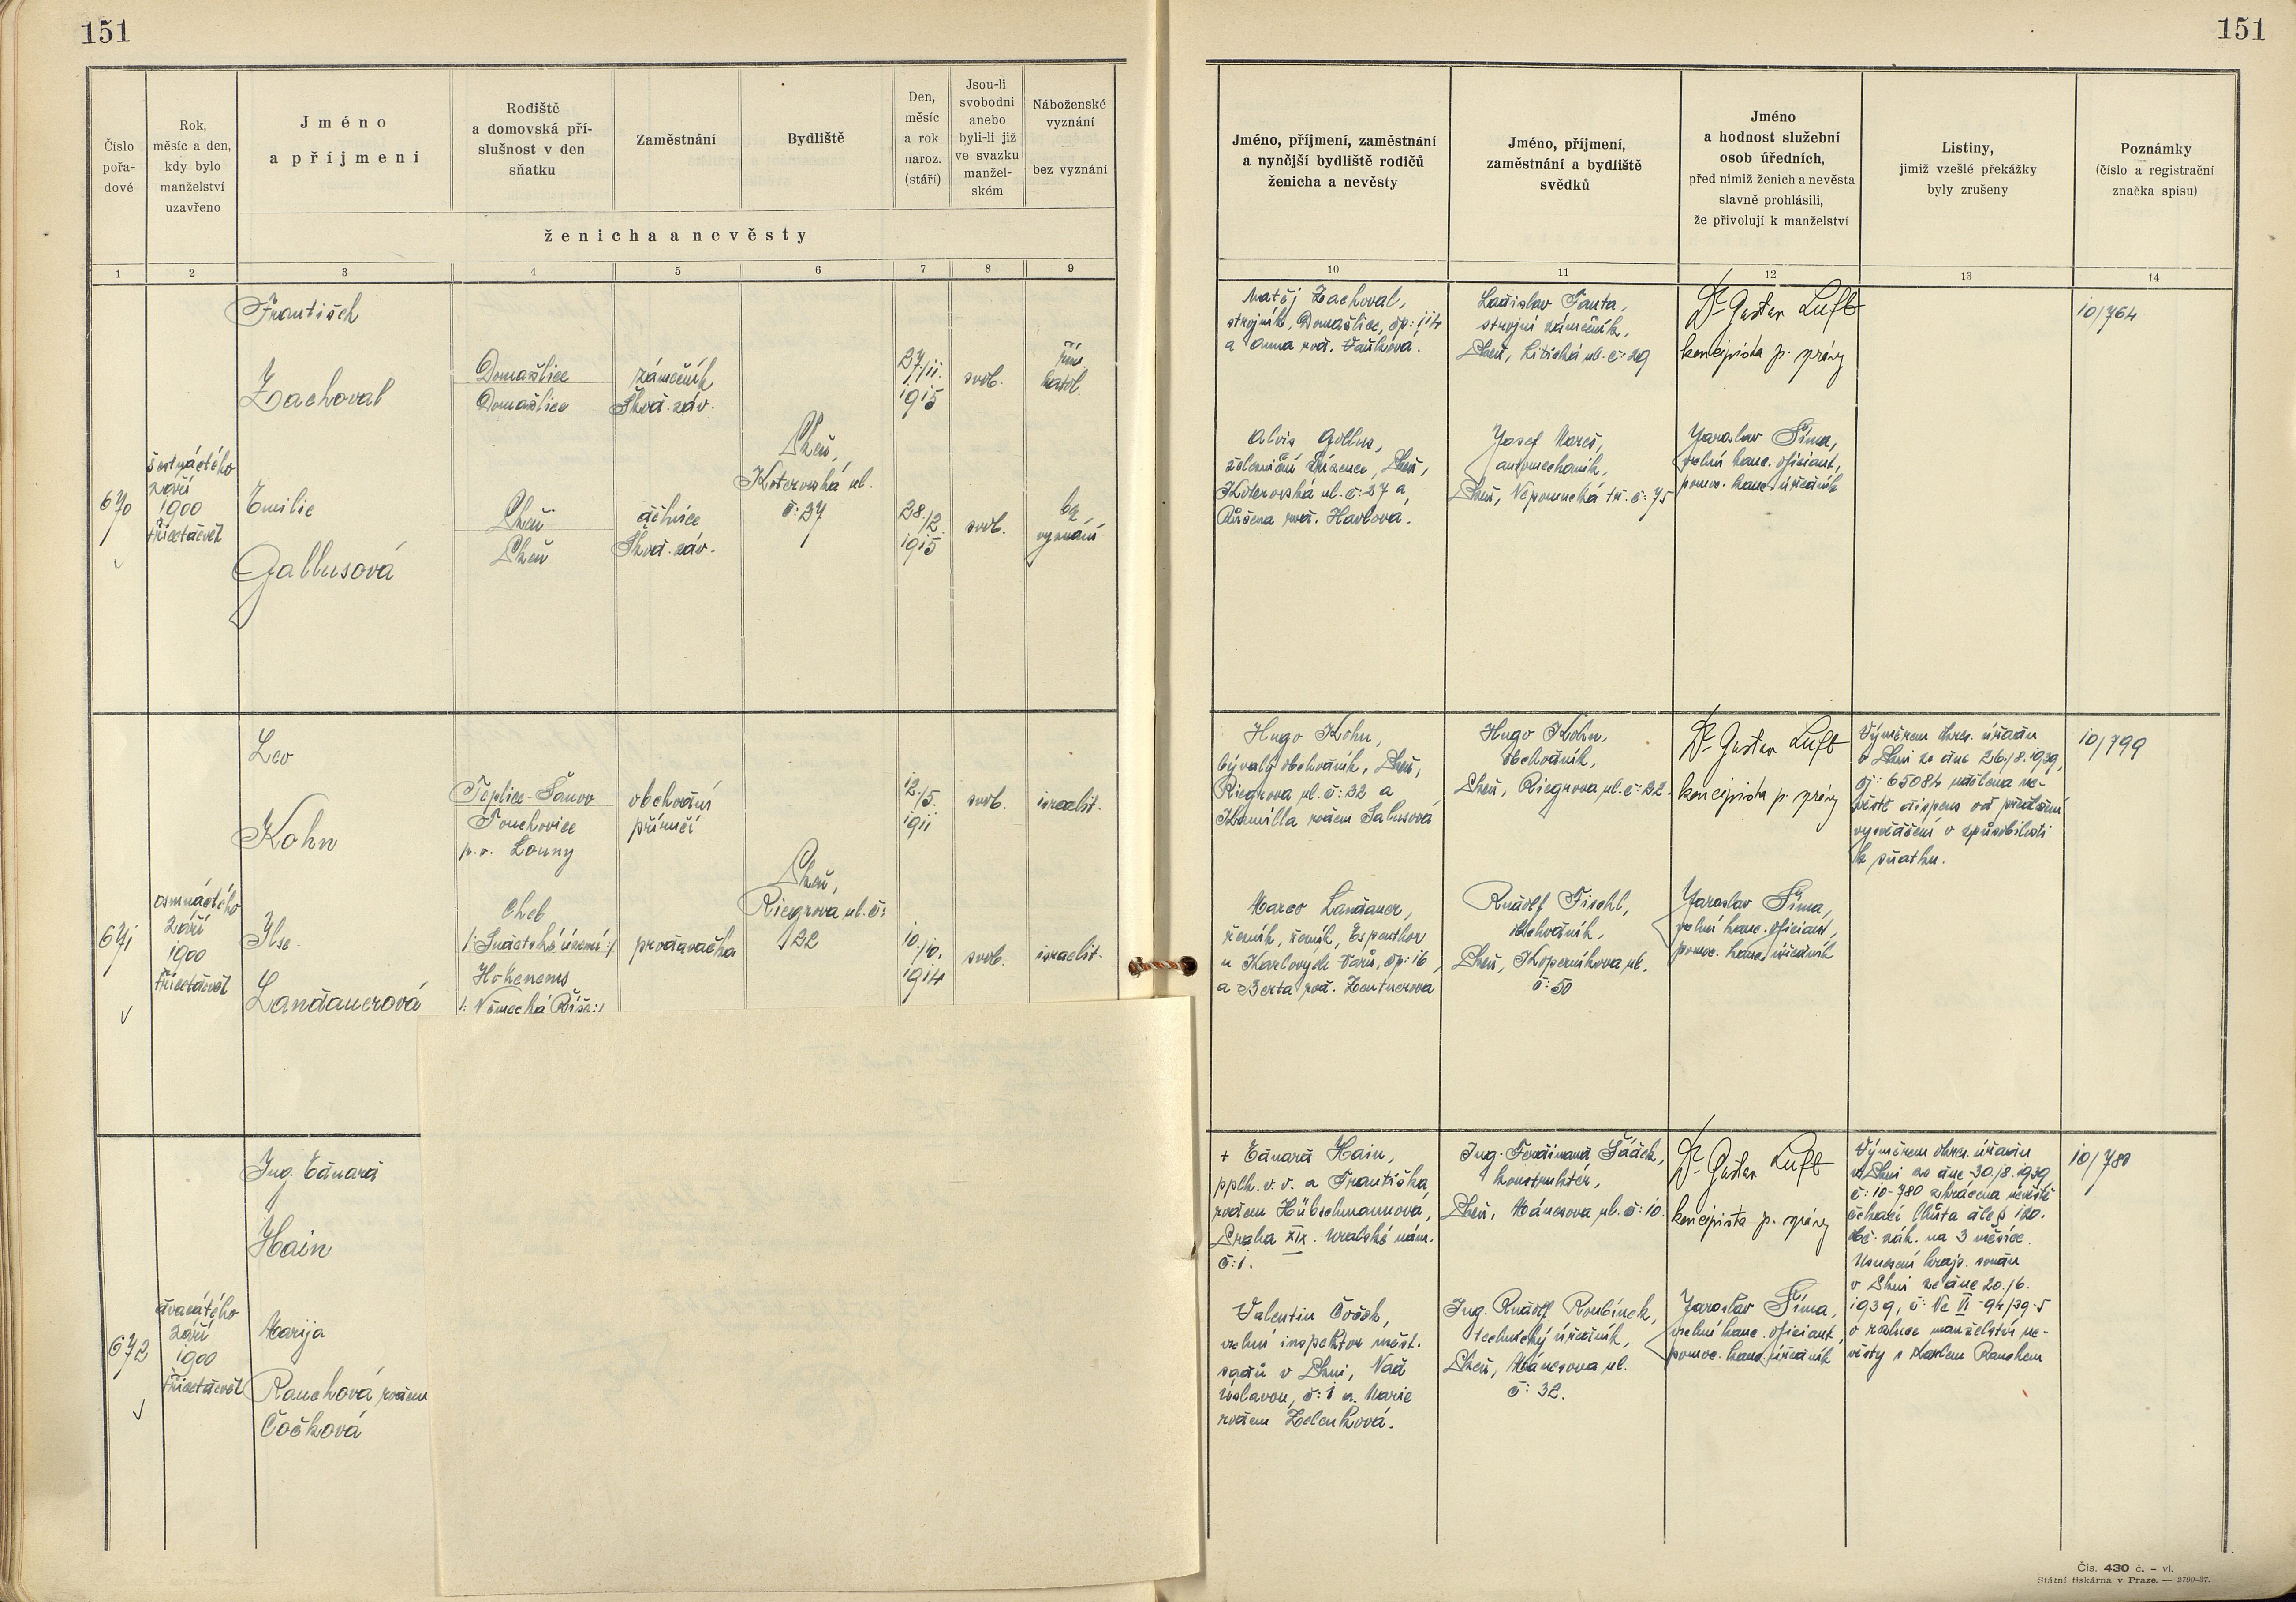 151
151
Číslo
pořa-
dové
Rok,
měsíc a den,
kdy bylo
manželství
uzavřeno
Jméno
a příjmení
Rodiště
a domovská pří-
slušnost v den
sňatku
Zaměstnání
Bydliště
Den,
měsíc
a rok
naroz.
(stáří)
Jsou-li
svobodni
anebo
byli-li již
ve svazku
manžel-
ském
Náboženské
vyznání
—
bez vyznání
ženicha a nevěsty
Jméno, příjmení, zaměstnání
a nynější bydliště rodičů
ženicha a nevěsty
Jméno, příjmení,
zaměstnání a bydliště
svědků
Jméno
a hodnost služební
osob úředních,
před nimiž ženich a nevěsta
slavně prohlásili,
že přivolují k manželství
Listiny,
jimiž vzešlé překážky
byly zrušeny
Poznámky
(číslo a registrační
značka spisu)
1 2 3 4 5 6 7 8 9
10 11 12 13 14
670
šestnáctého
září
1900
třicetdevět
František
Zachoval
Domažlice
Domažlice
zámečník
Škod. záv.
27./11.
1915
svob.
řím.
katol.
Plzeň,
Koterovská ul.
č: 27
Emilie
Gallusová
Plzeň
Plzeň
dělnice
Škod. záv.
28./2.
1915
svob.
bez
vyznání
Matěj Zachoval,
strojník, Domažlice, čp: 114
a Anna roz.
Ladislav Fanta,
strojní zámečník,
Plzeň, Litická ul. č: 29
Dr Gustav Luft
koncipista p. správy
10/764
Alois Gallus,
železniční zřízenec, Plzeň,
Koterovská ul. č: 27 a
Růžena roz. Havlová.
Josef Mareš,
automechanik,
Plzeň, Nepomucká tř. č: 75
Jaroslav Šíma,
velmi kanc. oficiant,
pomoc. kanc. úředník
671
osmnáctého
září
1900
třicetdevět
Leo
Kohn
Teplice-Šanov
Touchovice
p. o. Louny
obchodní
příručí
12./5.
1911
svob.
israelit.
Plzeň,
Riegrova ul. č:
22
Ilse
Landauerová
Cheb
/: Sudetské území :/
Hohenems
/: Německá Říše :/
prodavačka
10./10.
1914
svob.
israelit.
Hugo Kohn,
bývalý obchodník, Plzeň,
Riegrova ul. č: 22 a
Kamilla rozen Salusová
Hugo Kohn,
obchodník,
Plzeň, Riegrova ul. č: 22.
Dr Gustav Luft
koncipista p. správy
Výměrem okres. úřadu
v Plzni ze dne 26./8. 1939,
čj: 65084 udělena ne-
věstě dispens od předložení
vysvědčení o způsobilosti
ke sňatku.
10/799
Marco Landauer,
řezník, Espenthor
u Karlových Varů, čp: 16,
a Berta roz. Zentnerová
Rudolf Fischl,
obchodník,
Plzeň, Koperníkova ul.
č: 50
Jaroslav Šíma,
kanc. oficiant,
pomoc. kanc. úředník
672
dvacátého
září
1900
třicetdevět
Ing. Eduard
Hain
Marija
Rauchová, rozen
Čočková
+ Eduard Hain,
pplk. v. v. a Františka
rozen Hübschmannová,
Praha XIX. Uralské nám.
č: 1.
Ing. Ferdinand Šádek,
konstruktér,
Plzeň, Mánesova ul. č: 10.
Dr Gustav Luft
koncipista p. správy
Výměrem okres. úřadu
v Plzni ze dne 30./8. 1939,
č: 10-780 zkrácena nevěstě
čekací lhůta dle § 120.
obč. zák. na 3 měsíce.
Usnesení kraj. soudu
v Plzni ze dne 20./6.
1939, č: Nc VI-94/39-5
o rozluce manželství ne-
věsty s Karlem Rauchem
10/780
Valentin Čoček,
inspektor měst.
sadů v Plzni, Nad
Úslavou, č: 1 a Marie
rozen Zelenková.
Ing. Rudolf Roubínek,
technický úředník,
Plzeň, Mánesova ul.
č: 32.
Jaroslav Šíma,
kanc. oficiant,
pomoc. kanc. úředník
Čís. 430 č. – vl.
Státní tiskárna v Praze. — 2790-37.